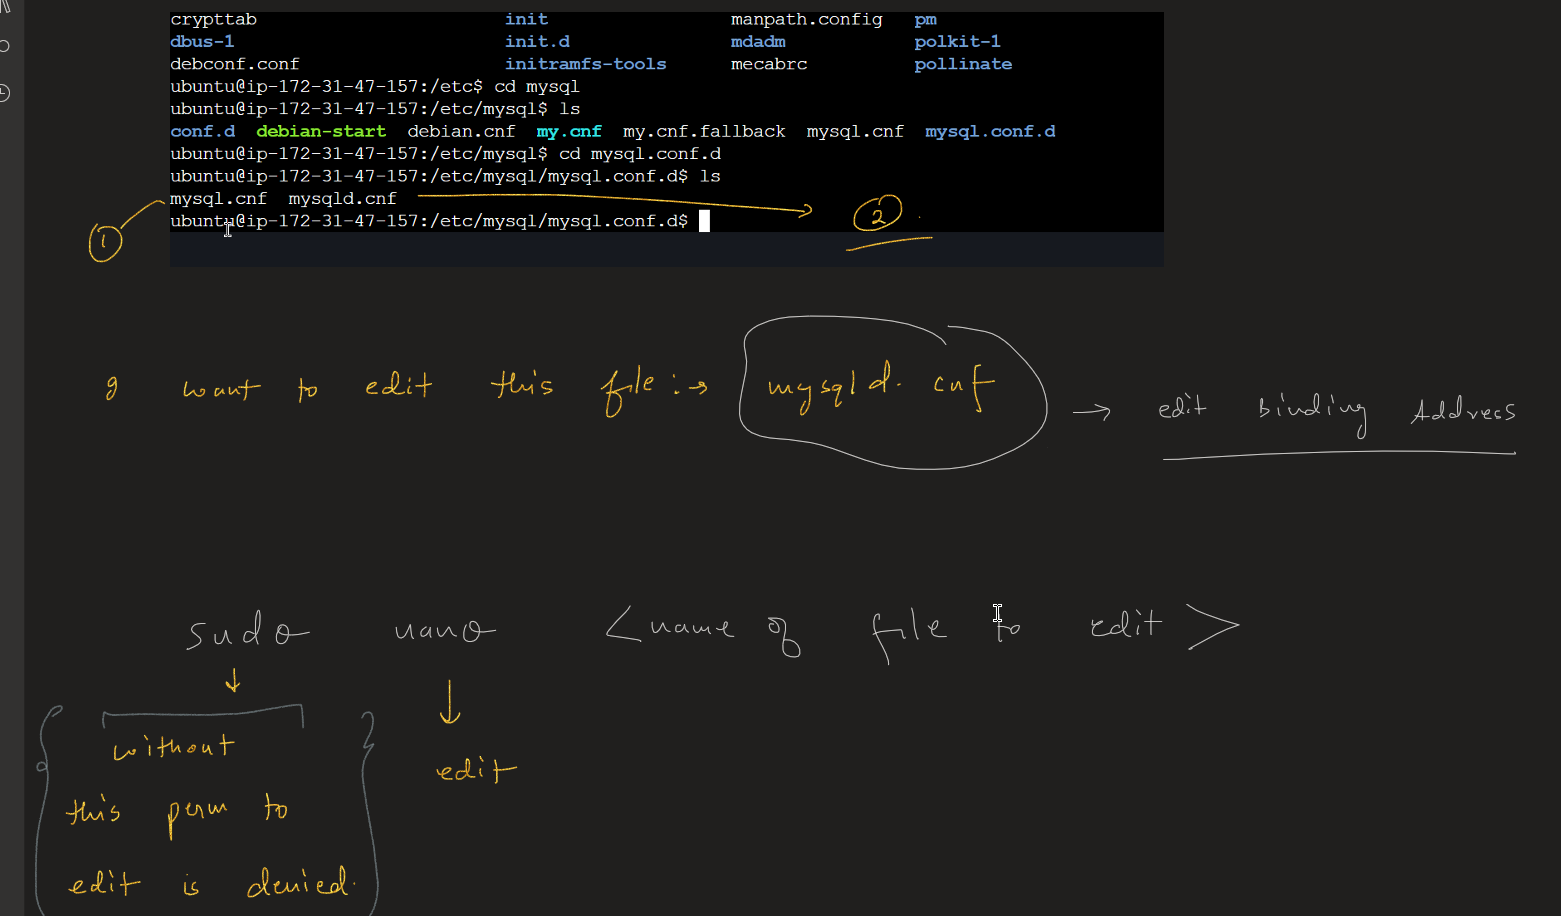 crypttab init manpath.config pm
dbus-1 init.d mdadm polkit-1
debconf.conf initramfs-tools mecabrc pollinate
ubuntu@ip-172-31-47-157:/etc$ cd mysql
ubuntu@ip-172-31-47-157:/etc/mysql$ ls
conf.d debian-start debian.cnf my.cnf my.cnf.fallback mysql.cnf mysql.conf.d
ubuntu@ip-172-31-47-157:/etc/mysql$ cd mysql.conf.d
ubuntu@ip-172-31-47-157:/etc/mysql/mysql.conf.d$ ls
mysql.cnf mysqld.cnf
ubuntu@ip-172-31-47-157:/etc/mysql/mysql.conf.d$
1
2
I want to edit this file :→ mysqld.cnf → edit binding Address
sudo nano <name of file to edit>
↓ ↓
without
edit
this perm to
edit is denied.